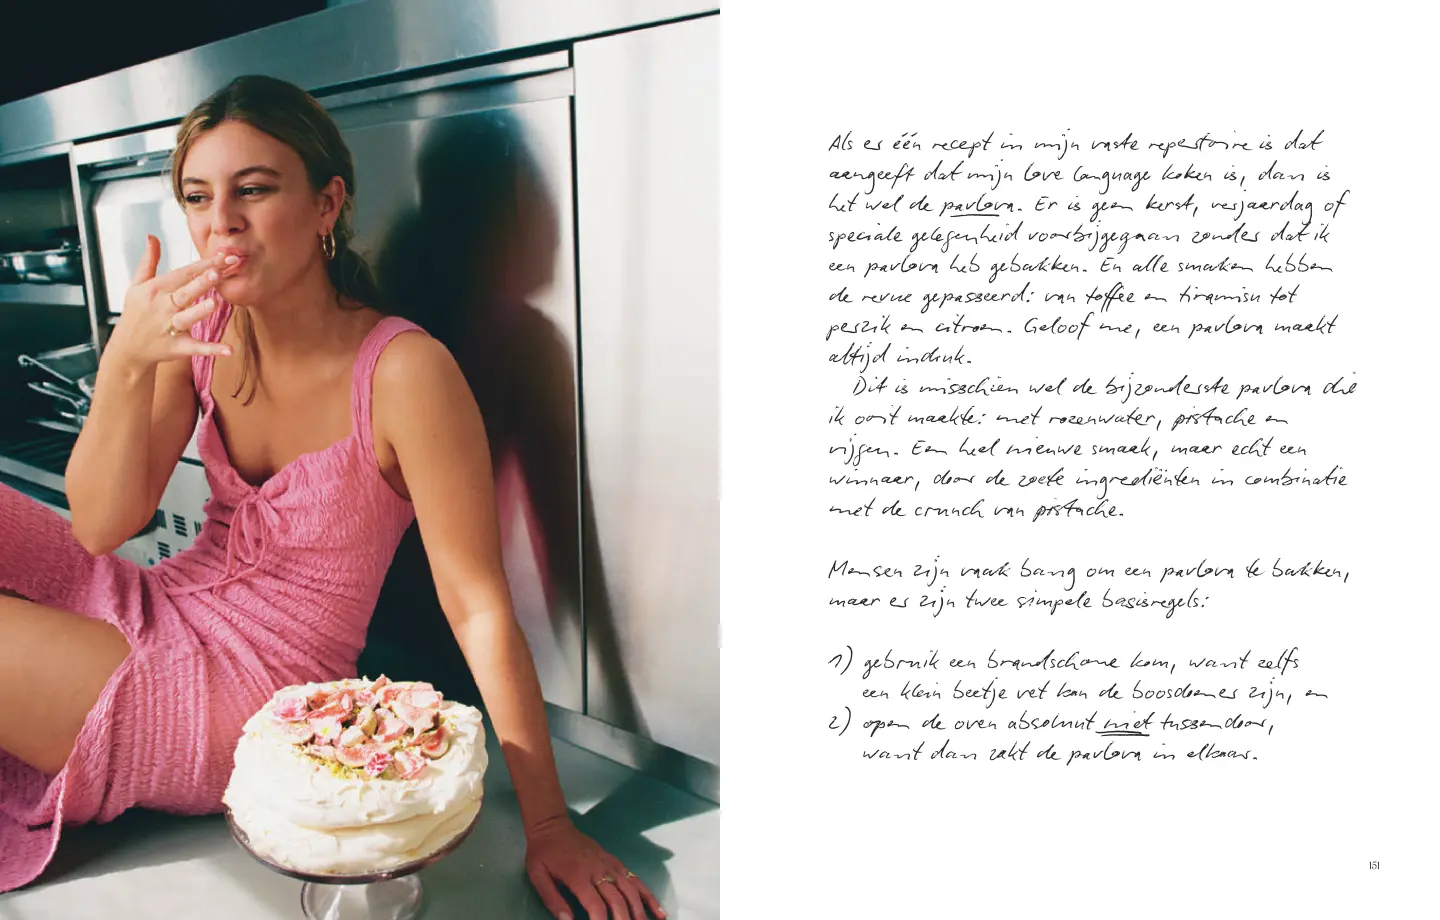 Als er één recept in mijn vaste repertoire is dat
aangeeft dat mijn love language koken is, dan is
het wel de pavlova. Er is geen kerst, verjaardag of
speciale gelegenheid voorbijgegaan zonder dat ik
een pavlova heb gebakken. En alle smaken hebben
de revue gepasseerd: van toffee en tiramisu tot
perzik en citroen. Geloof me, een pavlova maakt
altijd indruk.
Dit is misschien wel de bijzonderste pavlova die
ik ooit maakte: met rozenwater, pistache en
vijgen. Een heel nieuwe smaak, maar echt een
winnaar, door de zoete ingrediënten in combinatie
met de crunch van pistache.
Mensen zijn vaak bang om een pavlova te bakken,
maar er zijn twee simpele basisregels:
1) gebruik een brandschone kom, want zelfs
een klein beetje vet kan de boosdoener zijn, en
2) open de oven absoluut niet tussendoor,
want dan zakt de pavlova in elkaar.
151